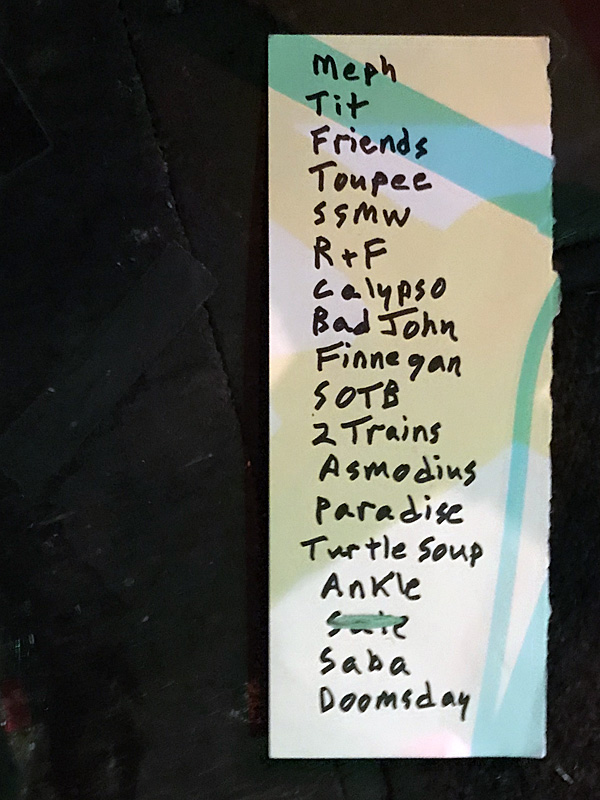 Meph
Tit
Friends
Toupee
SSMW
R+F
Calypso
Bad John
Finnegan
SOTB
2 Trains
Asmodius
Paradise
Turtle Soup
Ankle
Saba
Doomsday